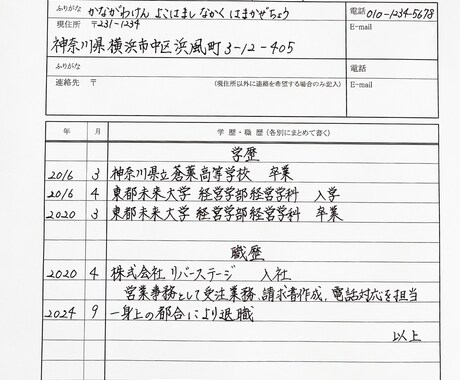 ふりがな かながわけん よこはまし なかく はまかぜちょう 電話 010-1234-5678
現住所 〒231-1234 E-mail
神奈川県横浜市中区浜風町3-12-405
ふりがな 電話
連絡先 〒 (現住所以外に連絡を希望する場合のみ記入) E-mail
年 月 学歴・職歴 (各別にまとめて書く)
学歴
2016 3 神奈川県立蒼葉高等学校 卒業
2016 4 東都未来大学 経営学部経営学科 入学
2020 3 東都未来大学 経営学部経営学科 卒業
職歴
2020 4 株式会社リバーステージ 入社
営業事務として受注業務、請求書作成、電話対応を担当
2024 9 一身上の都合により退職
以上